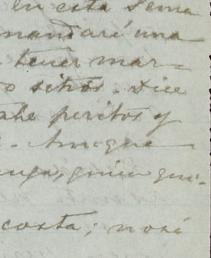 en esta sema
mandaré una
tener mar-
o sitios. Dice
abe peritos y
. Aunque
quien que-
costa; no sé